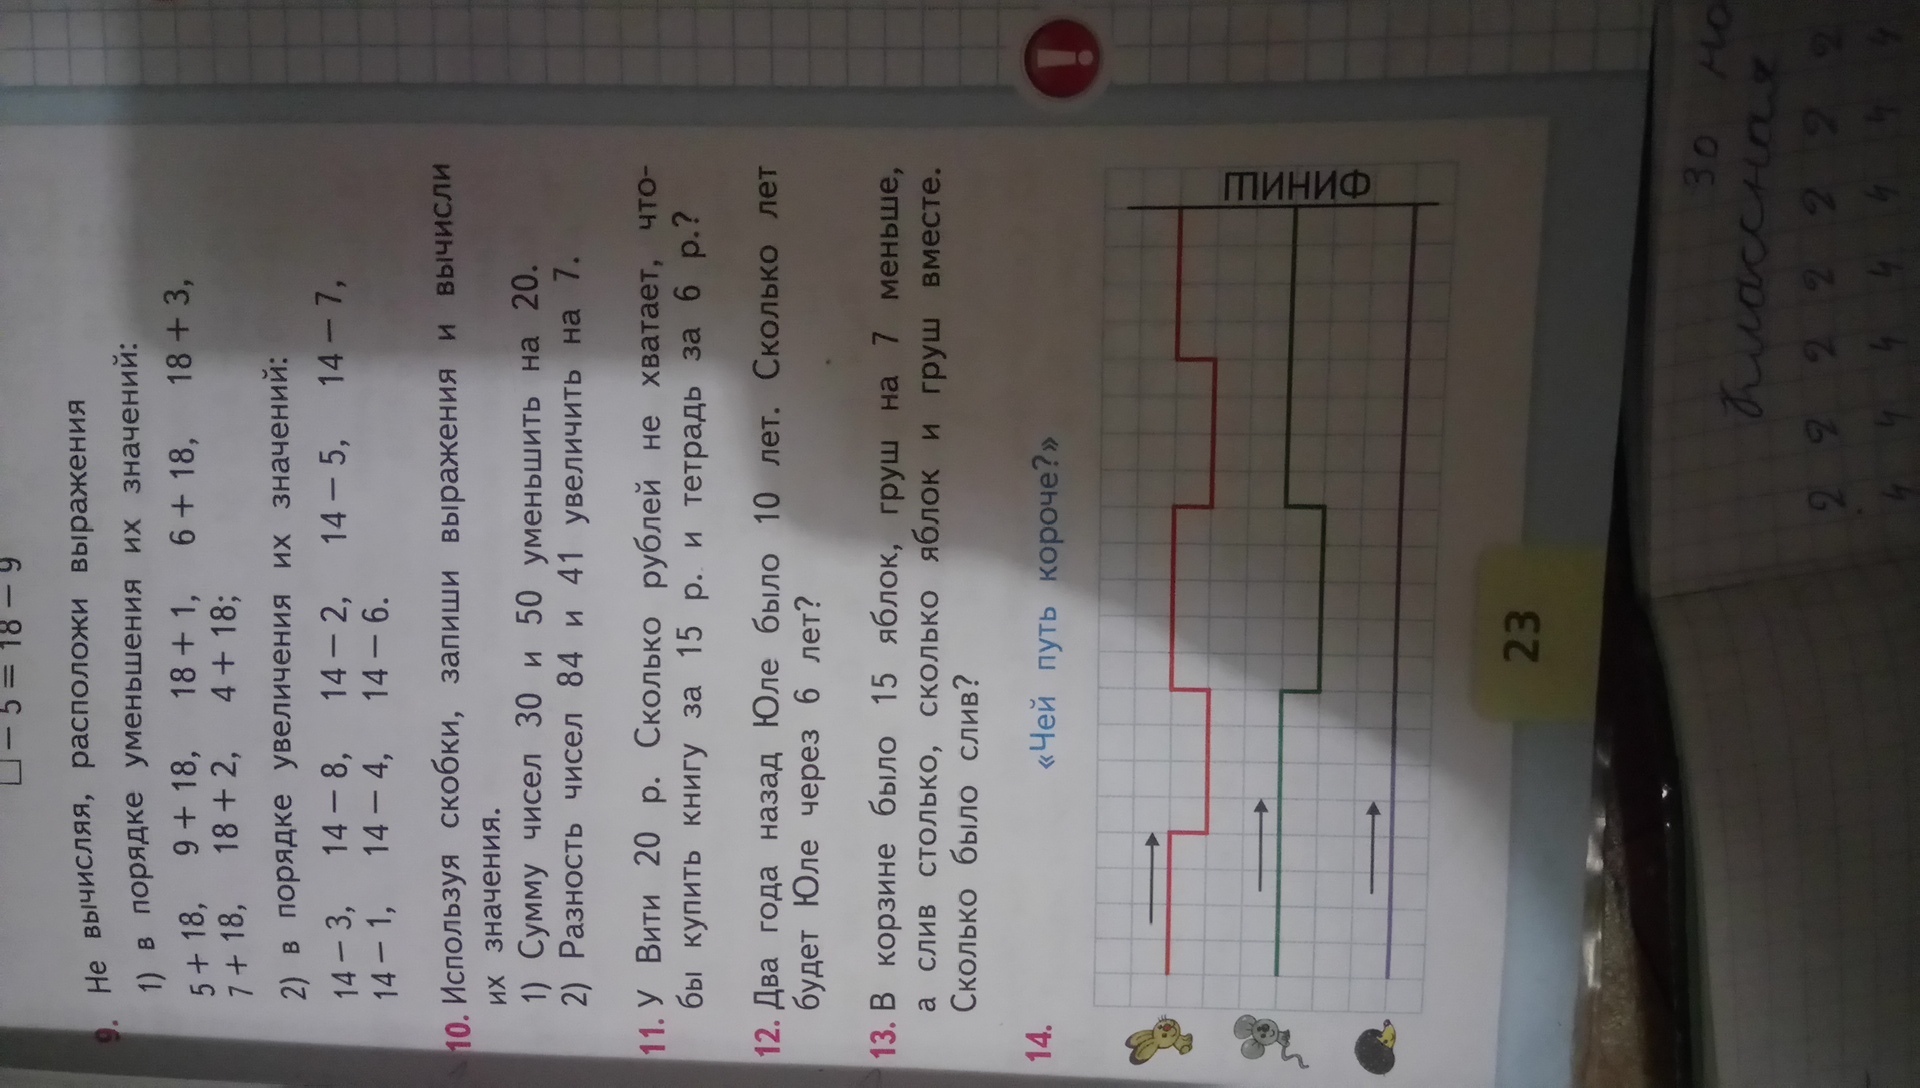 □ − 5 = 18 − 9
9. Не вычисляя, расположи выражения
1) в порядке уменьшения их значений:
5 + 18, 9 + 18, 18 + 1, 6 + 18, 18 + 3,
7 + 18, 18 + 2, 4 + 18;
2) в порядке увеличения их значений:
14 − 3, 14 − 8, 14 − 2, 14 − 5, 14 − 7,
14 − 1, 14 − 4, 14 − 6.
10. Используя скобки, запиши выражения и вычисли
их значения.
1) Сумму чисел 30 и 50 уменьшить на 20.
2) Разность чисел 84 и 41 увеличить на 7.
11. У Вити 20 р. Сколько рублей не хватает, что-
бы купить книгу за 15 р. и тетрадь за 6 р.?
12. Два года назад Юле было 10 лет. Сколько лет
будет Юле через 6 лет?
13. В корзине было 15 яблок, груш на 7 меньше,
а слив столько, сколько яблок и груш вместе.
Сколько было слив?
14. «Чей путь короче?»
ФИНИШ
!
23
30 но
Классная
2 2 2 2 2 2 2 2
4 4 4 4 4 4 4 4